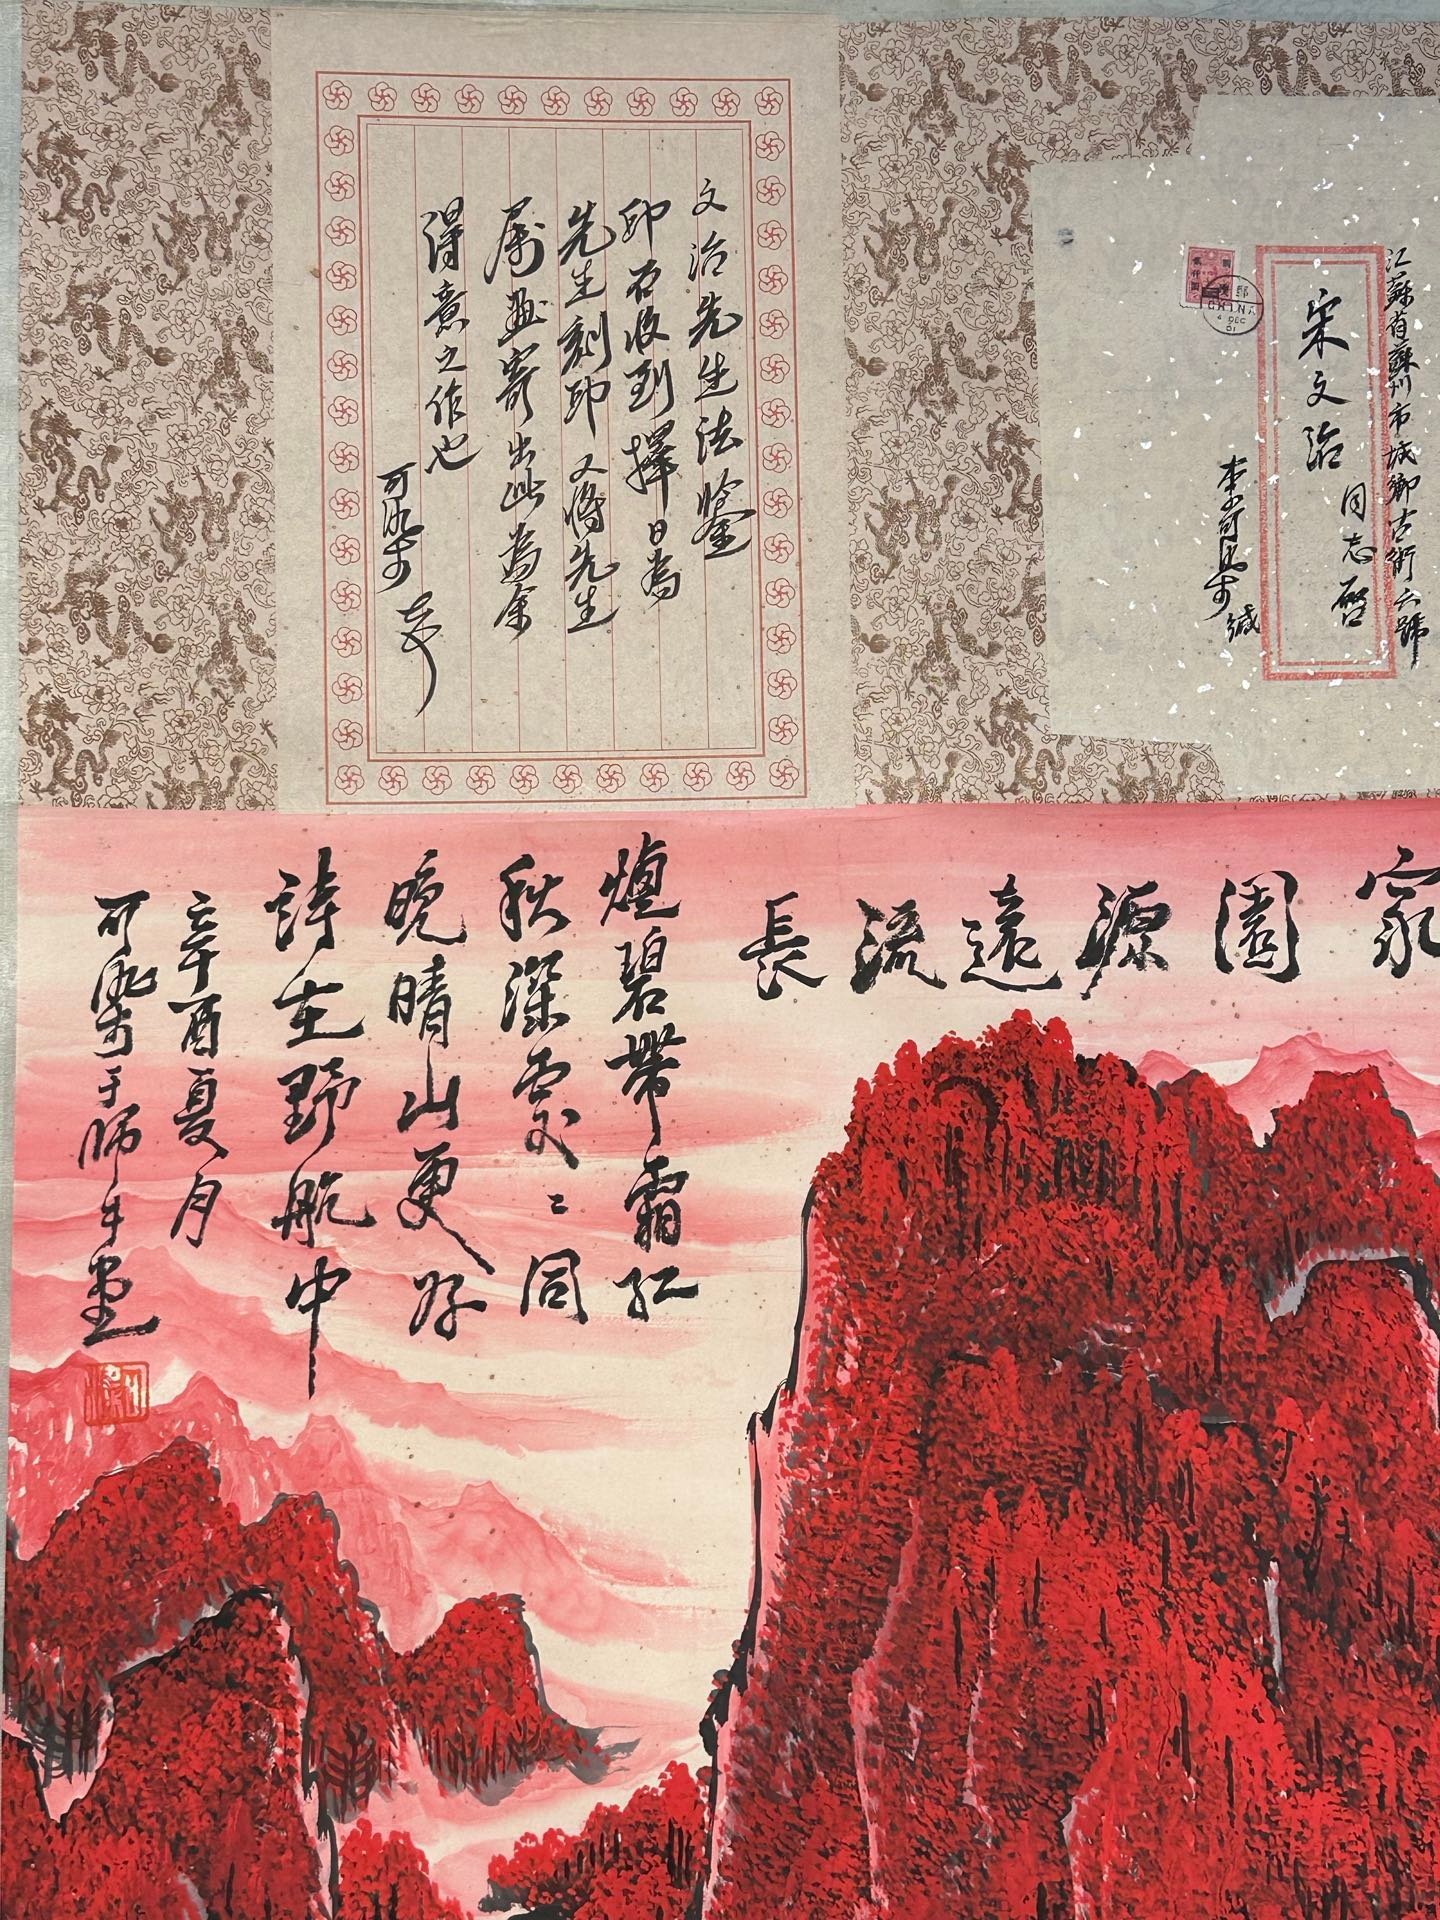 江蘇省蘇州市城鄉古街六號
宋文治
同志啓
李可染緘
CHINA
4 DEC
文治先生法鑒
印石收到擇日為
先生刻印又將先生
属畫寄出此為余
得意之作也
可染
家園源遠流長
煙碧帶霜紅
秋深處處同
晚晴山更好
詩在野航中
辛酉夏月
可染于師牛堂